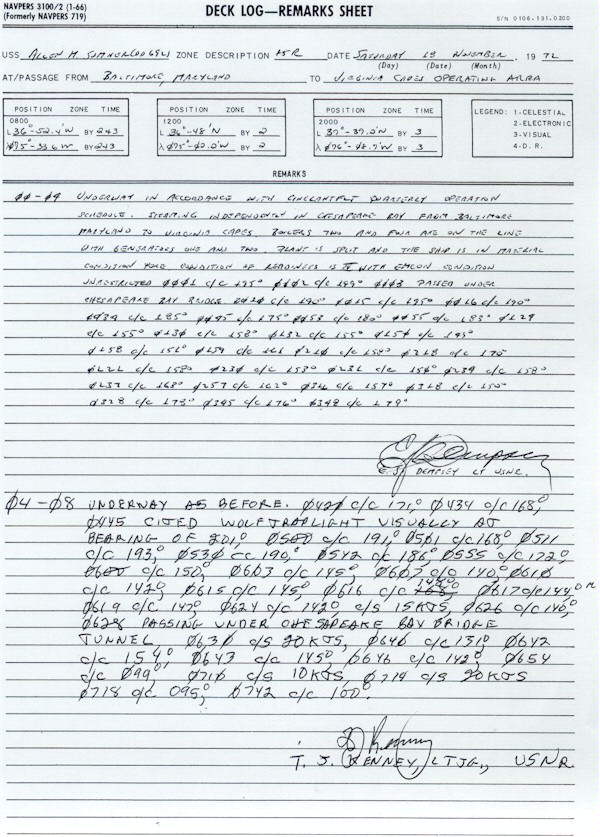 NAVPERS 3100/2 (1-66)
(Formerly NAVPERS 719)
DECK LOG—REMARKS SHEET
S/N 0106-131-0200
USS ALLEN M. SUMNER (DD692) ZONE DESCRIPTION +5R DATE SATURDAY 18 NOVEMBER, 19 72
(Day) (Date) (Month)
AT/PASSAGE FROM BALTIMORE, MARYLAND TO VIRGINIA CAPES OPERATING AREA
POSITION ZONE TIME
0800
L 36°-52.4'N BY 2+3
λ 075°-33.6W BY 2+3
POSITION ZONE TIME
1200
L 36°-48'N BY 2
λ 075°-42.0'W BY 2
POSITION ZONE TIME
2000
L 37°-37.0'N BY 3
λ 076°-48.7'W BY 3
LEGEND: 1-CELESTIAL
2-ELECTRONIC
3-VISUAL
4-D.R.
REMARKS
00-04 UNDERWAY IN ACCORDANCE WITH CINCLANTFLT QUARTERLY OPERATION
SCHEDULE. STEAMING INDEPENDENTLY IN CHESAPEAKE BAY FROM BALTIMORE
MARYLAND TO VIRGINIA CAPES. BOILERS TWO AND FOUR ARE ON THE LINE
WITH GENERATORS ONE AND TWO. PLANT IS SPLIT AND THE SHIP IS IN MATERIAL
CONDITION YOKE CONDITION OF READINESS IS IV WITH EMCON CONDITION
UNRESTRICTED 0001 c/c 195° 0002 c/c 199° 0003 PASSED UNDER
CHESAPEAKE BAY BRIDGE c/c 190° 0015 c/c 195° 0026 c/c 190°
0039 c/c 185° 0045 c/c 175° 0053 c/c 180° 0055 c/c 183° 0129
c/c 155° 0130 c/c 158° 0132 c/c 155° 0150 c/c
0158 c/c 151° 0159 c/c 0210 c/c 0218 c/c 170°
0221 c/c 158° 0230 c/c 153° 0231 c/c 156° 0234 c/c 158°
0237 c/c 168° 0257 c/c 162° 0316 c/c 157° 0318 c/c 150°
0328 c/c 173° 0345 c/c 176° 0348 c/c 179°
E. J. DEMPSEY LT USNR.
04-08 UNDERWAY AS BEFORE. 0420 c/c 171,° 0434 c/c 168,°
0445 CITED WOLFTRAPLIGHT VISUALLY AT
BEARING OF 201° 0500 c/c 191,° 0501 c/c 168° 0511
c/c 193,° 0530 cc 190,° 0542 c/c 186° 0555 c/c 172,°
0600 c/c 150,° 0603 c/c 145,° 0607 c/c 140° 0610
c/c 142°, 0615 c/c 145,° 0616 c/c 0617 c/c 144,°
0619 c/c 147,° 0624 c/c 142° c/s 15 KTS, 0626 c/c 140,°
0628 PASSING UNDER CHESAPEAKE BAY BRIDGE
TUNNEL 0630 c/s 20 KTS, 0640 c/c 131° 0642
c/c 154,° 0643 c/c 145° 0646 c/c 142° 0654
c/c 099,° 0710 c/s 10 KTS, 0714 c/s 20 KTS
0718 c/c 095,° 0742 c/c 100.°
T. J. KENNEY, LTJG., USNR